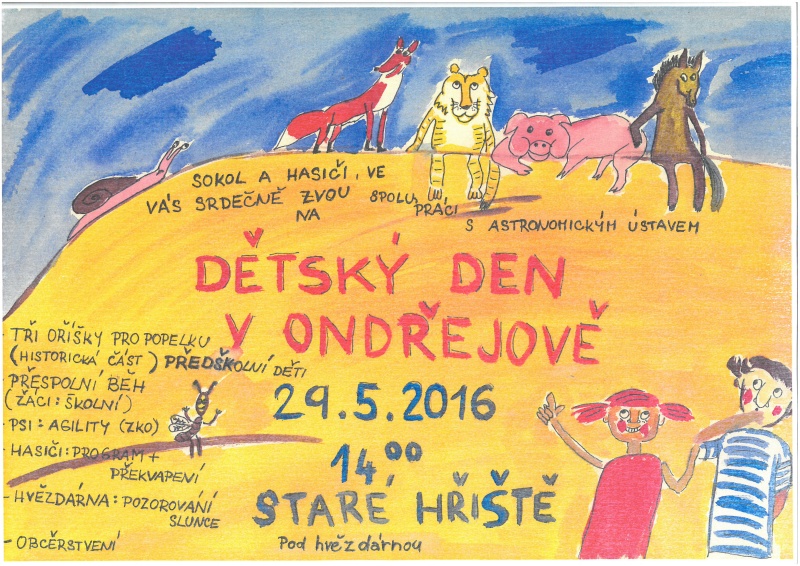 SOKOL A HASIČI, VE SPOLUPRÁCI
S ASTRONOMICKÝM ÚSTAVEM
VÁS SRDEČNĚ ZVOU
NA
DĚTSKÝ DEN
V ONDŘEJOVĚ
29.5.2016
14⁰⁰
STARÉ HŘIŠTĚ
Pod hvězdárnou
- TŘI OŘÍŠKY PRO POPELKU
(HISTORICKÁ ČÁST) PŘEDŠKOLNÍ DĚTI
- PŘESPOLNÍ BĚH
(ŽÁCI: ŠKOLNÍ)
- PSI: AGILITY (ZKO)
- HASIČI: PROGRAM +
PŘEKVAPENÍ
- HVĚZDÁRNA: POZOROVÁNÍ
SLUNCE
- OBČERSTVENÍ